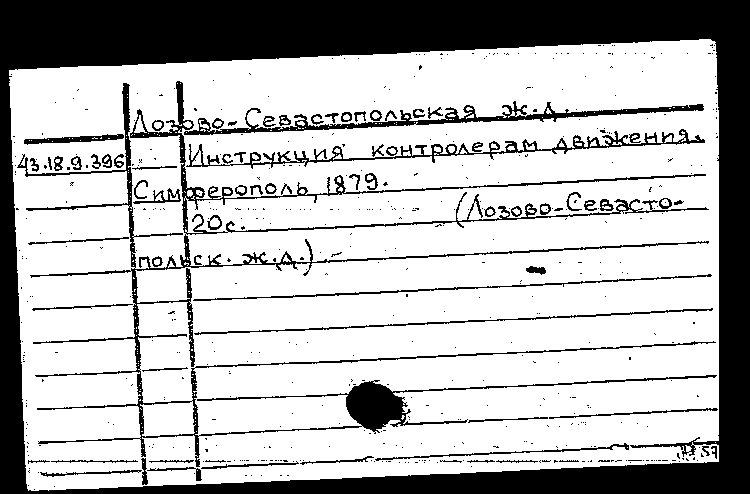 Лозово-Севастопольская ж.д.
43.18.9.396 Инструкция контролерам движения.
Симферополь, 1879.
20с. (Лозово-Севасто-
польск. ж.д.)